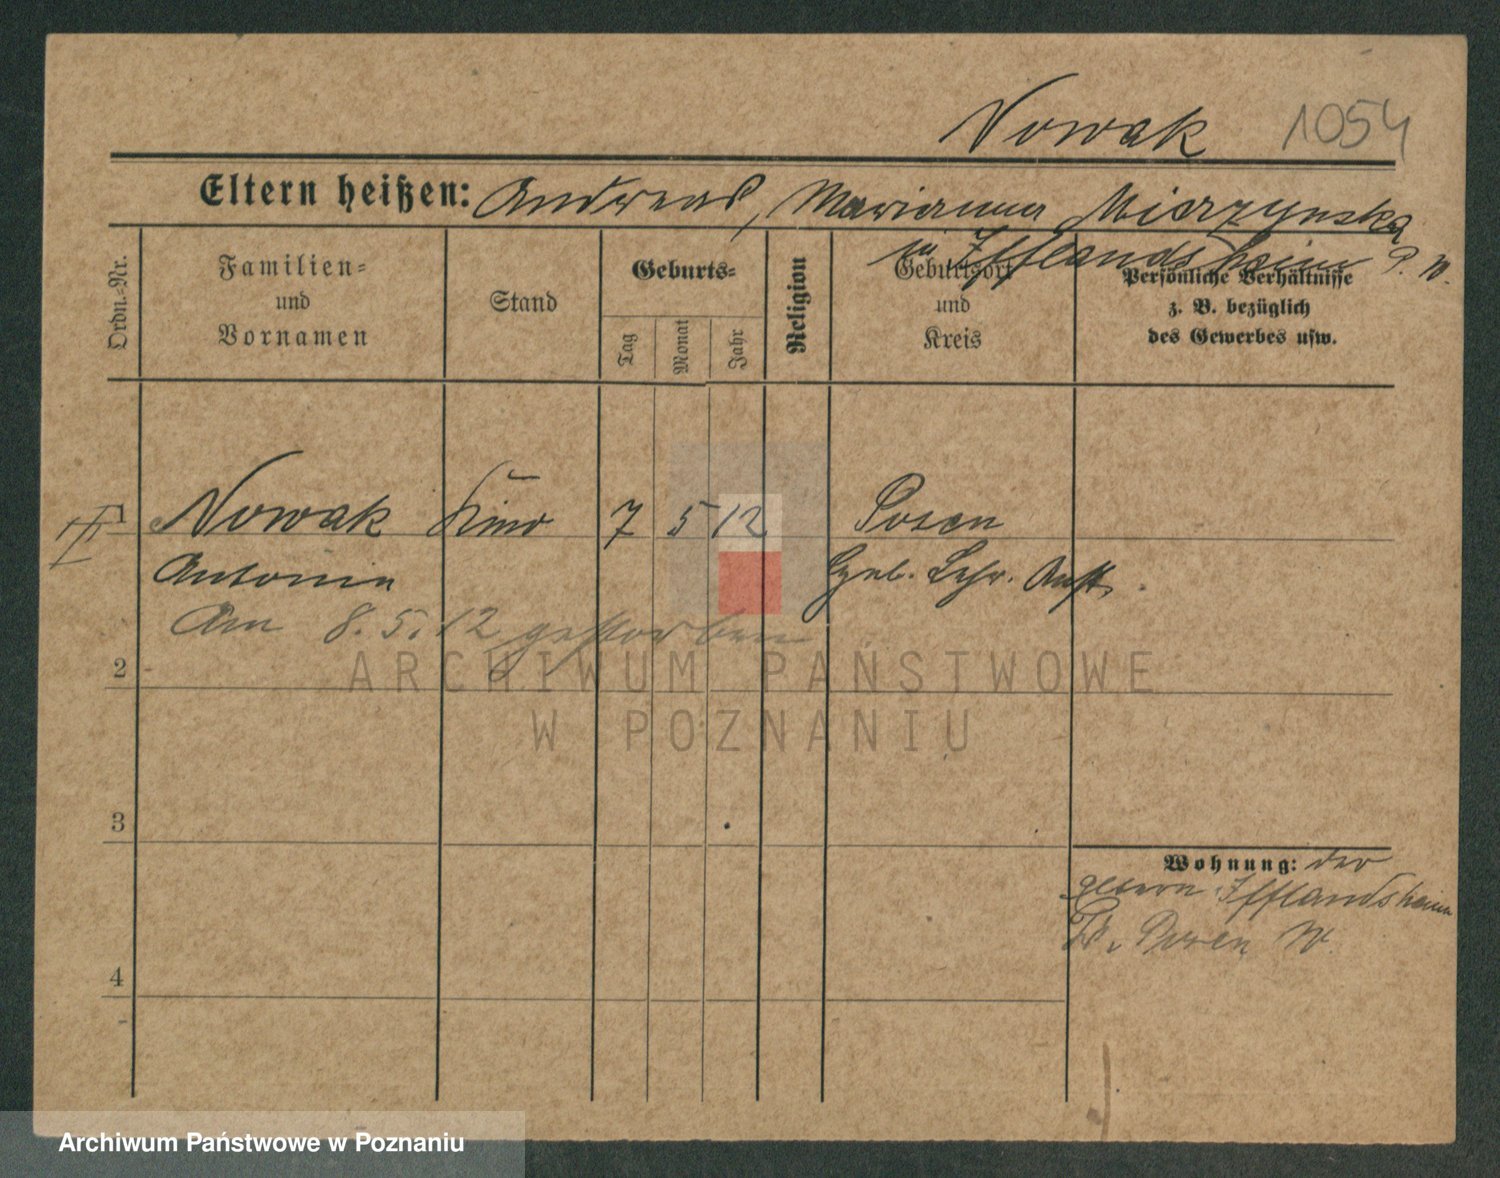 Nowak 1054
Eltern heißen: Andreas, Marianna Mierzynska
in Ifflandsheim P. W.
Ordn.-Nr.
Familien-
und
Vornamen
Stand
Geburts-
Tag
Monat
Jahr
Religion
Geburtsort
und
Kreis
Persönliche Verhältnisse
z. B. bezüglich
des Gewerbes usw.
Nowak Kind 7 5 12 Posen
Antonin Geb. Lehr. Anst.
Am 8. 5. 12 gestorben
2
ARCHIWUM PAŃSTWOWE
W POZNANIU
3
Wohnung: der
Eltern Ifflandsheim
Posen W.
4
Archiwum Państwowe w Poznaniu